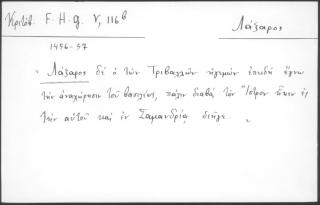 Κριτόβ. F. H. G. V, 116b
Λάζαρος
1456-57
" Λάζαρος δὲ ὁ τῶν Τριβαλλῶν ἡγεμὼν ἐπειδὴ ἔγνω
τὴν ἀναχώρησιν τοῦ βασιλέως, πάλιν διαβὰς τὸν Ἴστρον ἧκεν ἐς
τὴν αὑτοῦ καὶ ἐν Σαμανδρίᾳ διῆγε "